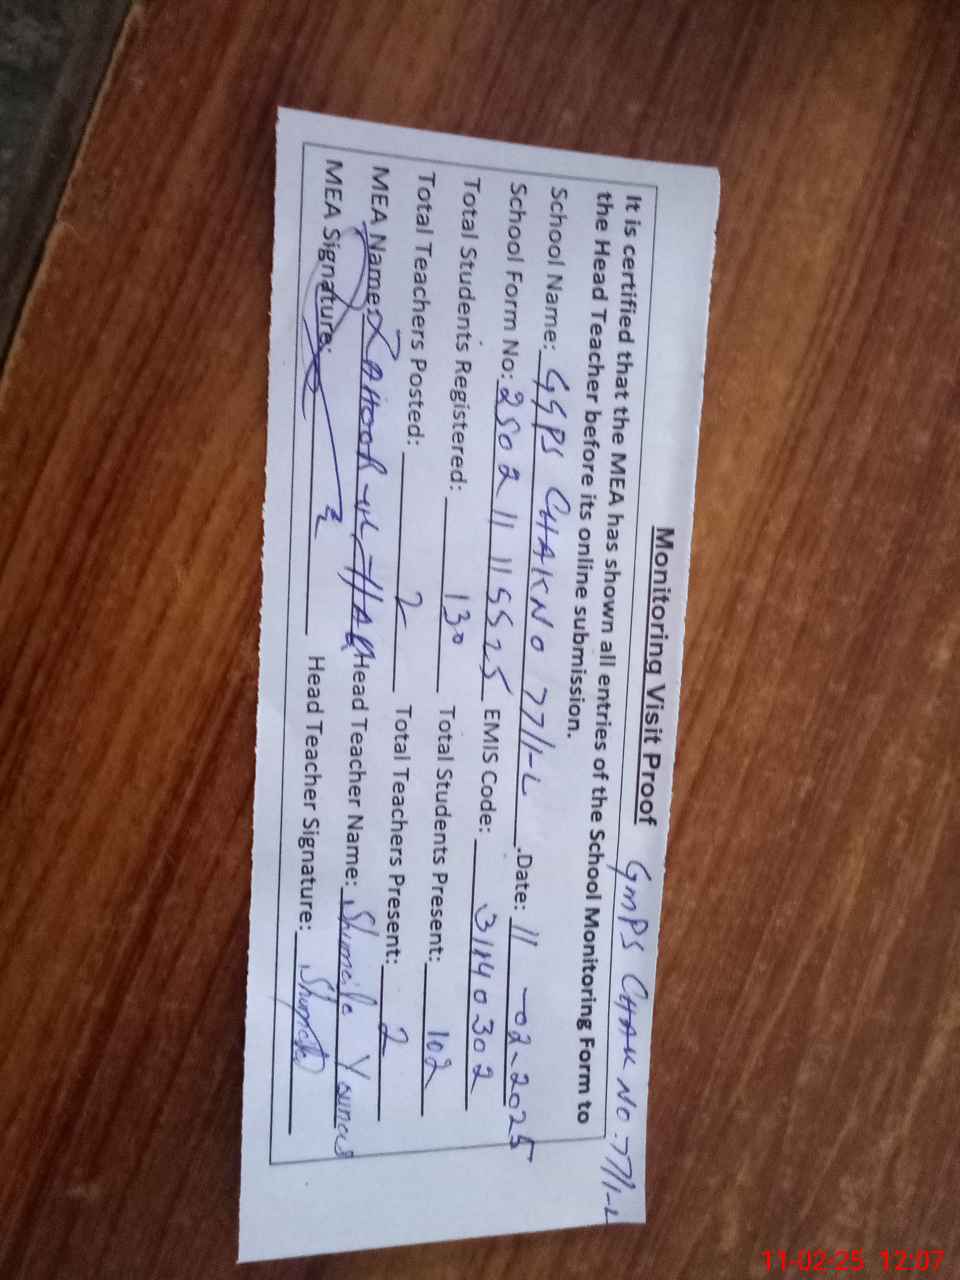 Monitoring Visit Proof GMPS CHAK NO.77/1-L
It is certified that the MEA has shown all entries of the School Monitoring Form to
the Head Teacher before its online submission.
School Name: GGPS CHAK NO 77/1-L .Date: 11-02-2025
School Form No: 250211115525 EMIS Code: 31140302
Total Students Registered: 130 Total Students Present: 102
Total Teachers Posted: 2 Total Teachers Present: 2
MEA Name: ul-HAQ Head Teacher Name: Younas
MEA Signature: Head Teacher Signature:
11-02-25 12:07